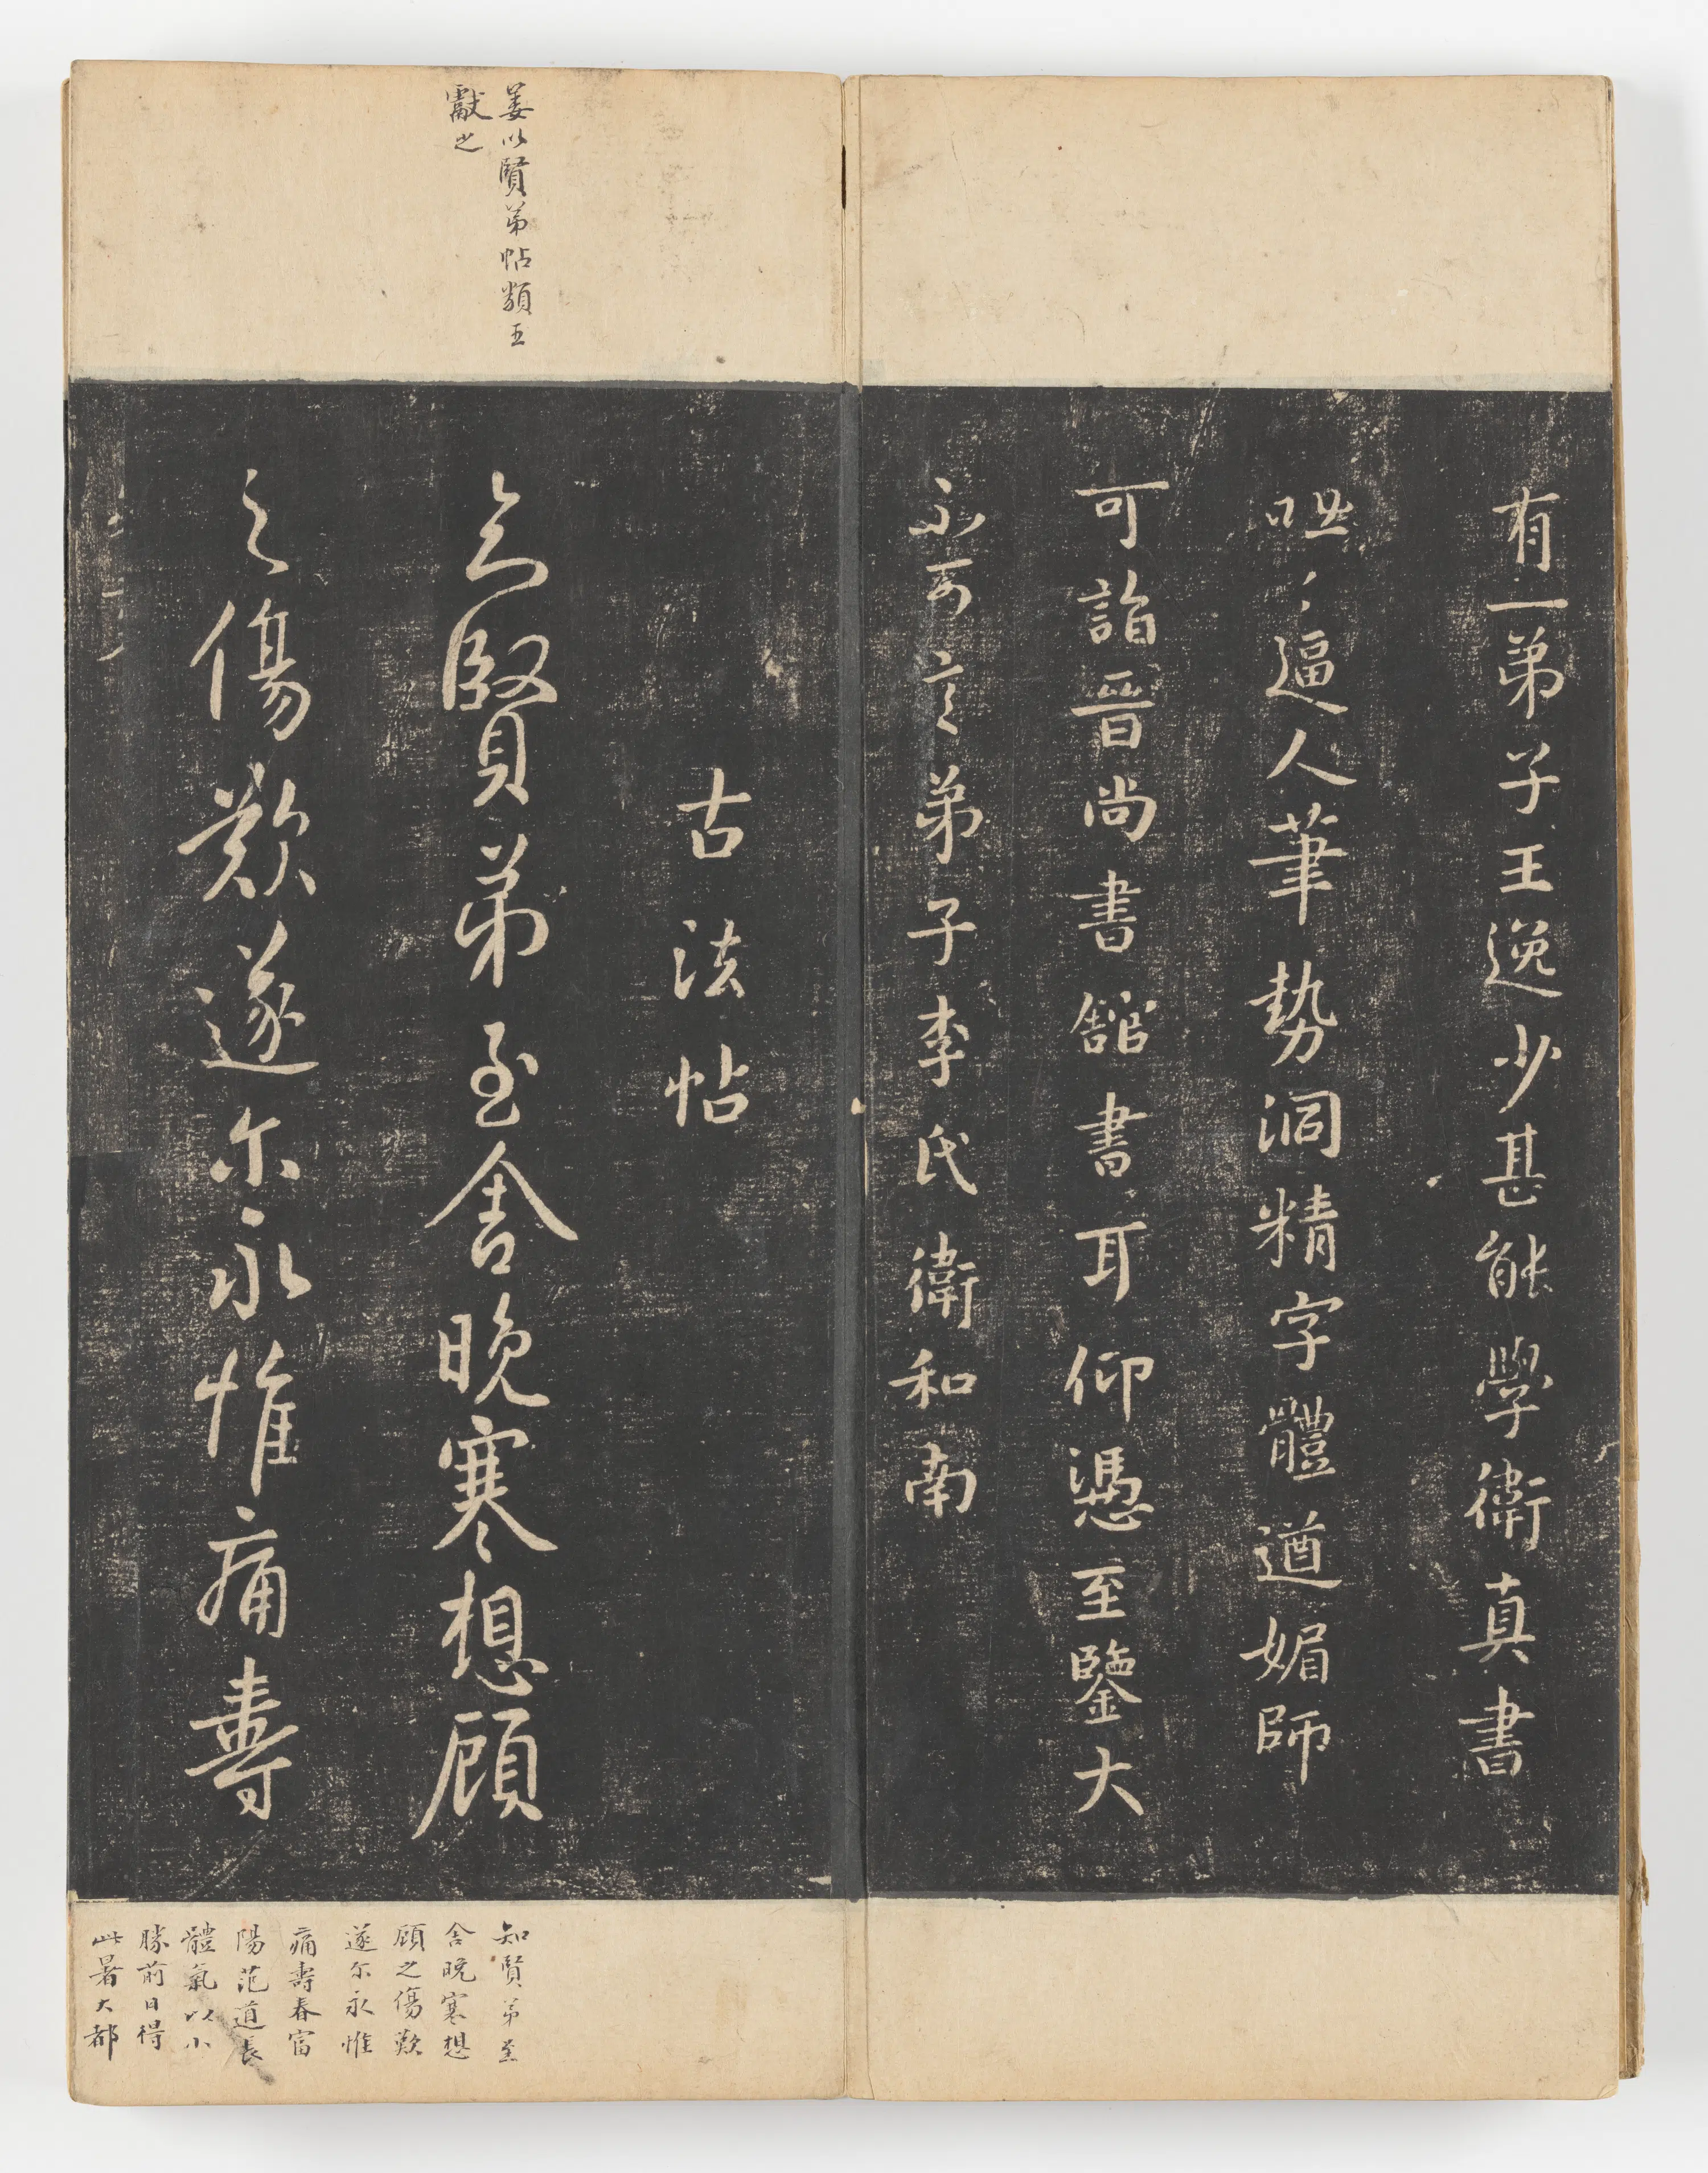 有一弟子王逸少甚能學衛真書
咄〻逼人筆勢洞精字體遒媚師
可詣晉尚書館書耳仰憑至鑒大
不可言弟子李氏衛和南
姜以賢弟帖類王
獻之
古法帖
知賢弟至舍晚寒想顧
之傷歎遂尔永惟痛壽
知賢弟至
舍晚寒想
顧之傷歎
遂尔永惟
痛壽春富
陽范道長
體氣以小
勝前日得
此暑大都